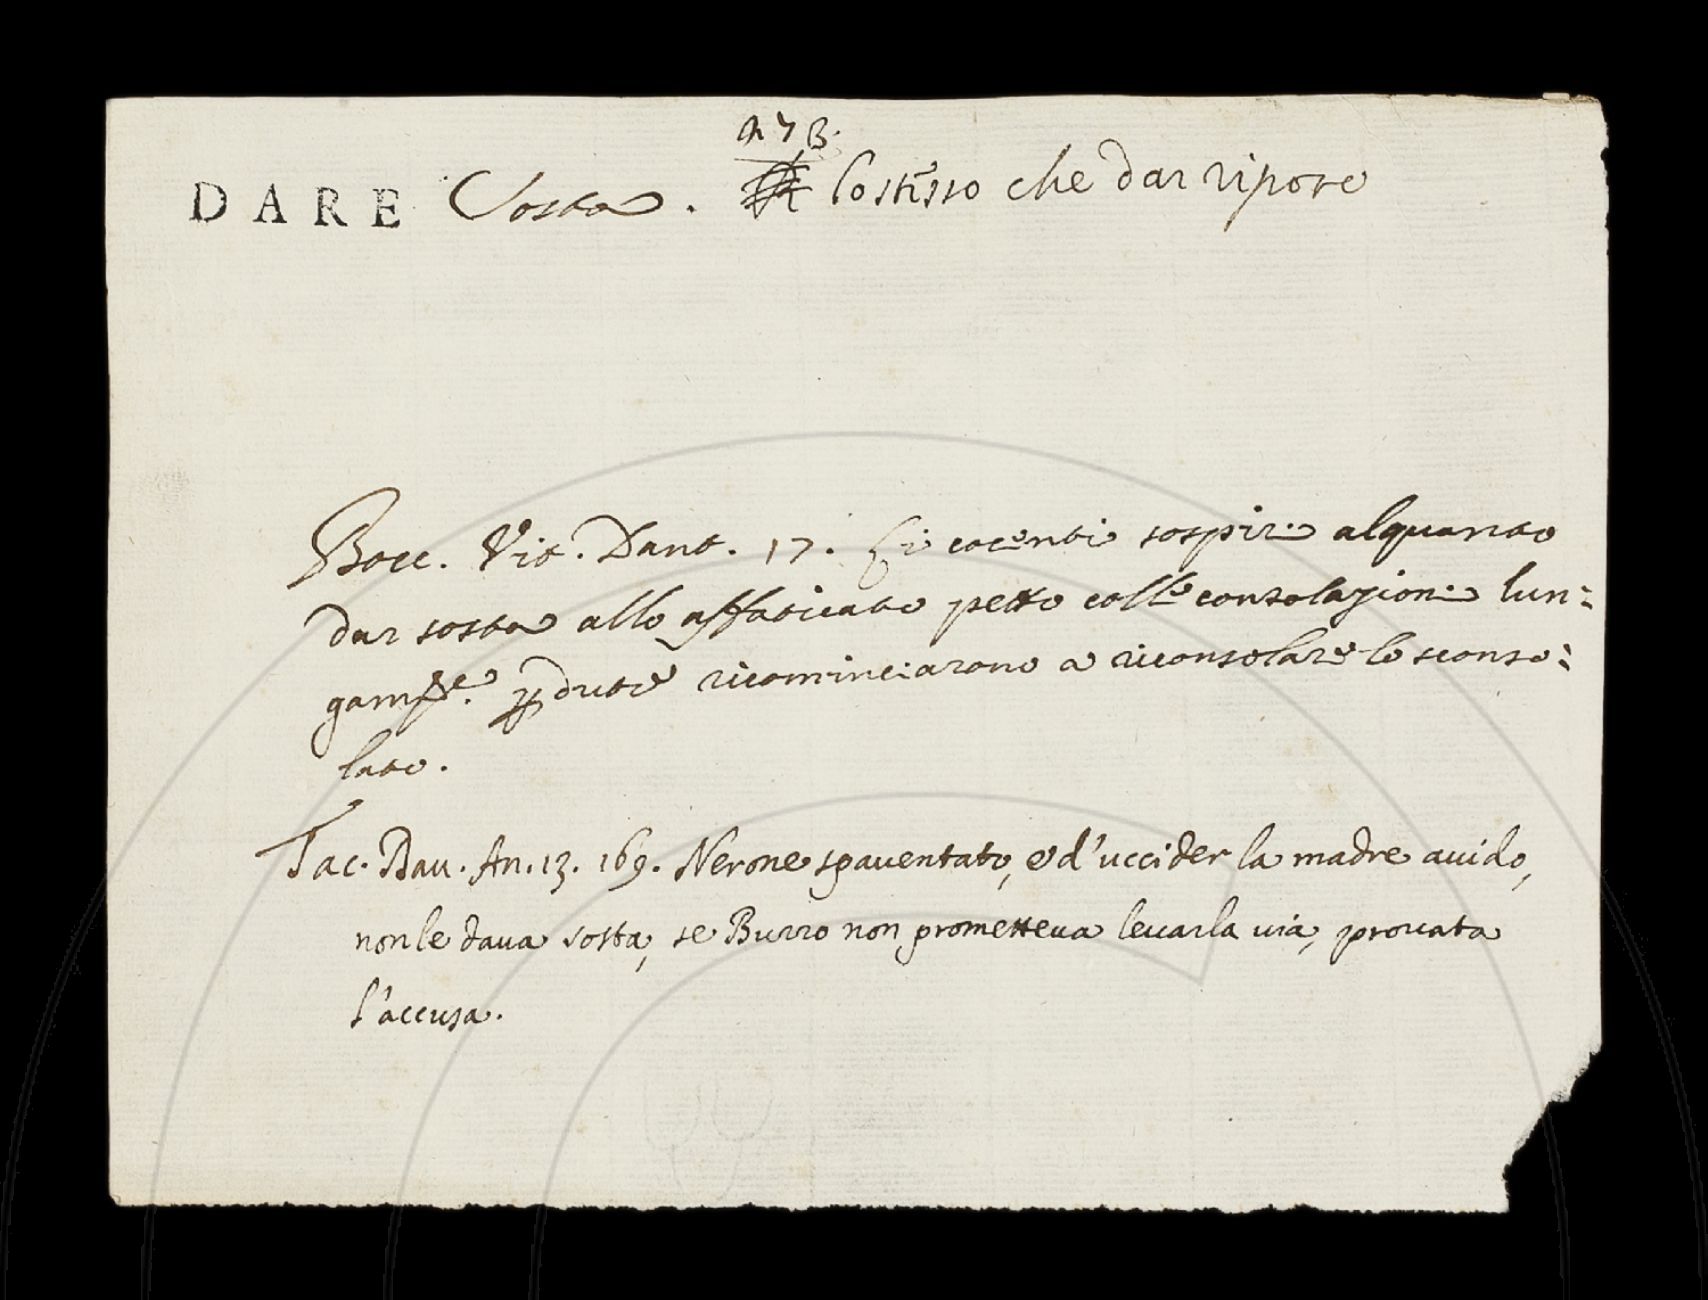 DARE Sosta. Lo stesso che dar riposo
Bocc. Vit. Dant. 17. Li cocenti sospiri alquanto
dar sosta allo affaticato petto colle consolazioni lun=
gam.te perdute ricominciarono a riconsolare lo sconso=
lato.
Tac. Dav. An. 13. 169. Nerone spaventato, e d'uccider la madre auido,
non le daua sosta, se Burro non prometteua leuarla uia, prouata
l'accusa.